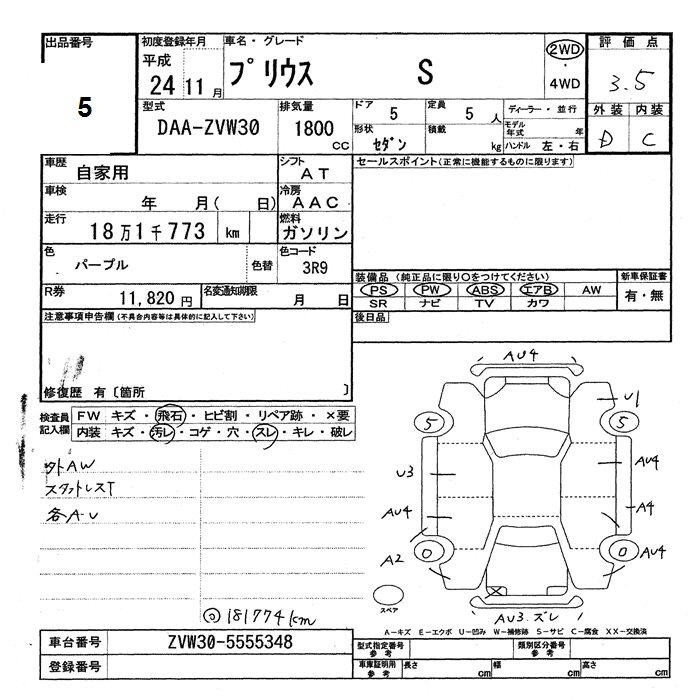 出品番号
5
初度登録年月
平成
24 11 月
車名・グレード
プリウス S
2WD
・
4WD
評価点
3.5
外装 内装
D C
型式
DAA-ZVW30
排気量
1800
CC
ドア
5
定員
5 人
形状
セダン
積載
kg
ディーラー・並行
モデル
年式 年
ハンドル 左・右
車歴
自家用
シフト
AT
車検
年 月( 日)
冷房
AAC
走行
18万1千773 km
燃料
ガソリン
色
パープル
色替
色コード
3R9
R券
11,820 円
名変通知期限
月 日
セールスポイント(正常に機能するものに限ります)
装備品(純正品に限り○をつけてください)
PS PW ABS エアB AW
SR ナビ TV カワ
新車保証書
有・無
後日品
注意事項申告欄(不具合内容等は具体的に記入して下さい)
修復歴 有〔箇所 〕
検査員
記入欄
FW キズ・飛石・ヒビ割・リペア跡・×要
内装 キズ・汚レ・コゲ・穴・スレ・キレ・破レ
外AW
スタットレスT
各A-U
◎181774km
AU4
U1
5
5
U3
AU4
AU4
A4
A2
0
0
AU4
スペア
AU3.ズレ
A-キズ E-エクボ U-凹み W-補修跡 S-サビ C-腐食 XX-交換済
車台番号
ZVW30-5555348
登録番号
型式指定番号
参考
類別区分番号
参考
車庫証明用
参考
長さ cm
幅 cm
高さ cm